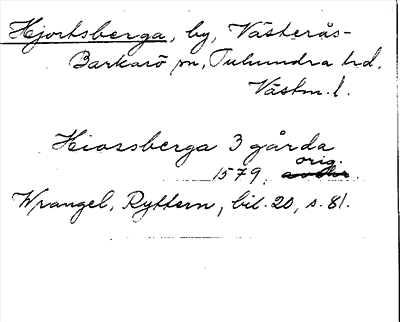 Hjortsberga, by, Västerås-
Barkarö sn, Tuhundra hd,
Västm. l.
Hiossberga 3 gårda
orig.
1579, avskr.
Wrangel, Ryttern, bil. 20, s. 81.